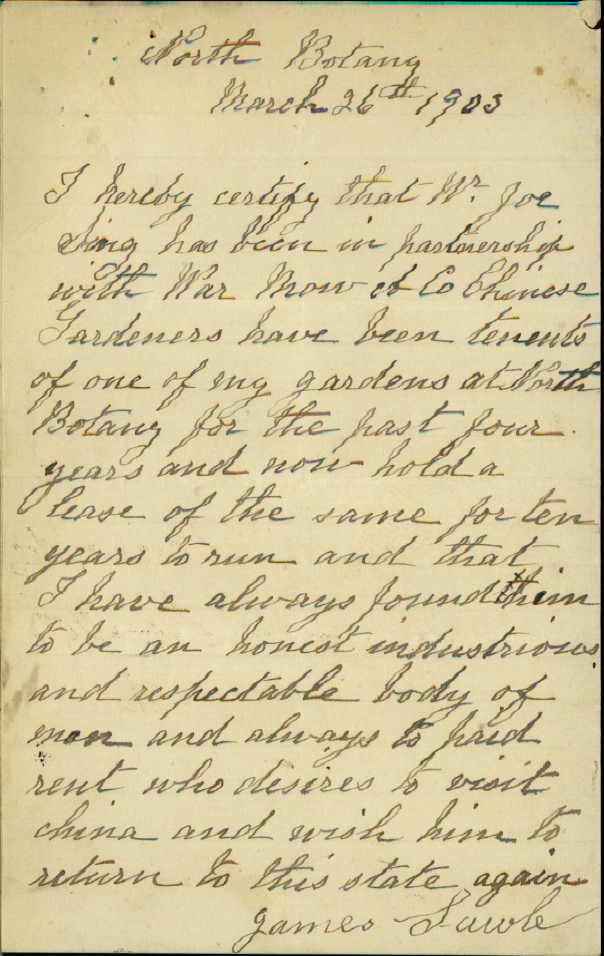 North Botany
March 26th 1903
I hereby certify that Mr. Joe
Sing has been in partnership
with War Mow & Co Chinese
Gardeners have been tenents
of one of my gardens at North
Botany for the past four
years and now hold a
lease of the same for ten
years to run and that
I have always found them
to be an honest industrious
and respectable body of
men and always to paid
rent who desires to visit
china and wish him to
return to this state again
James